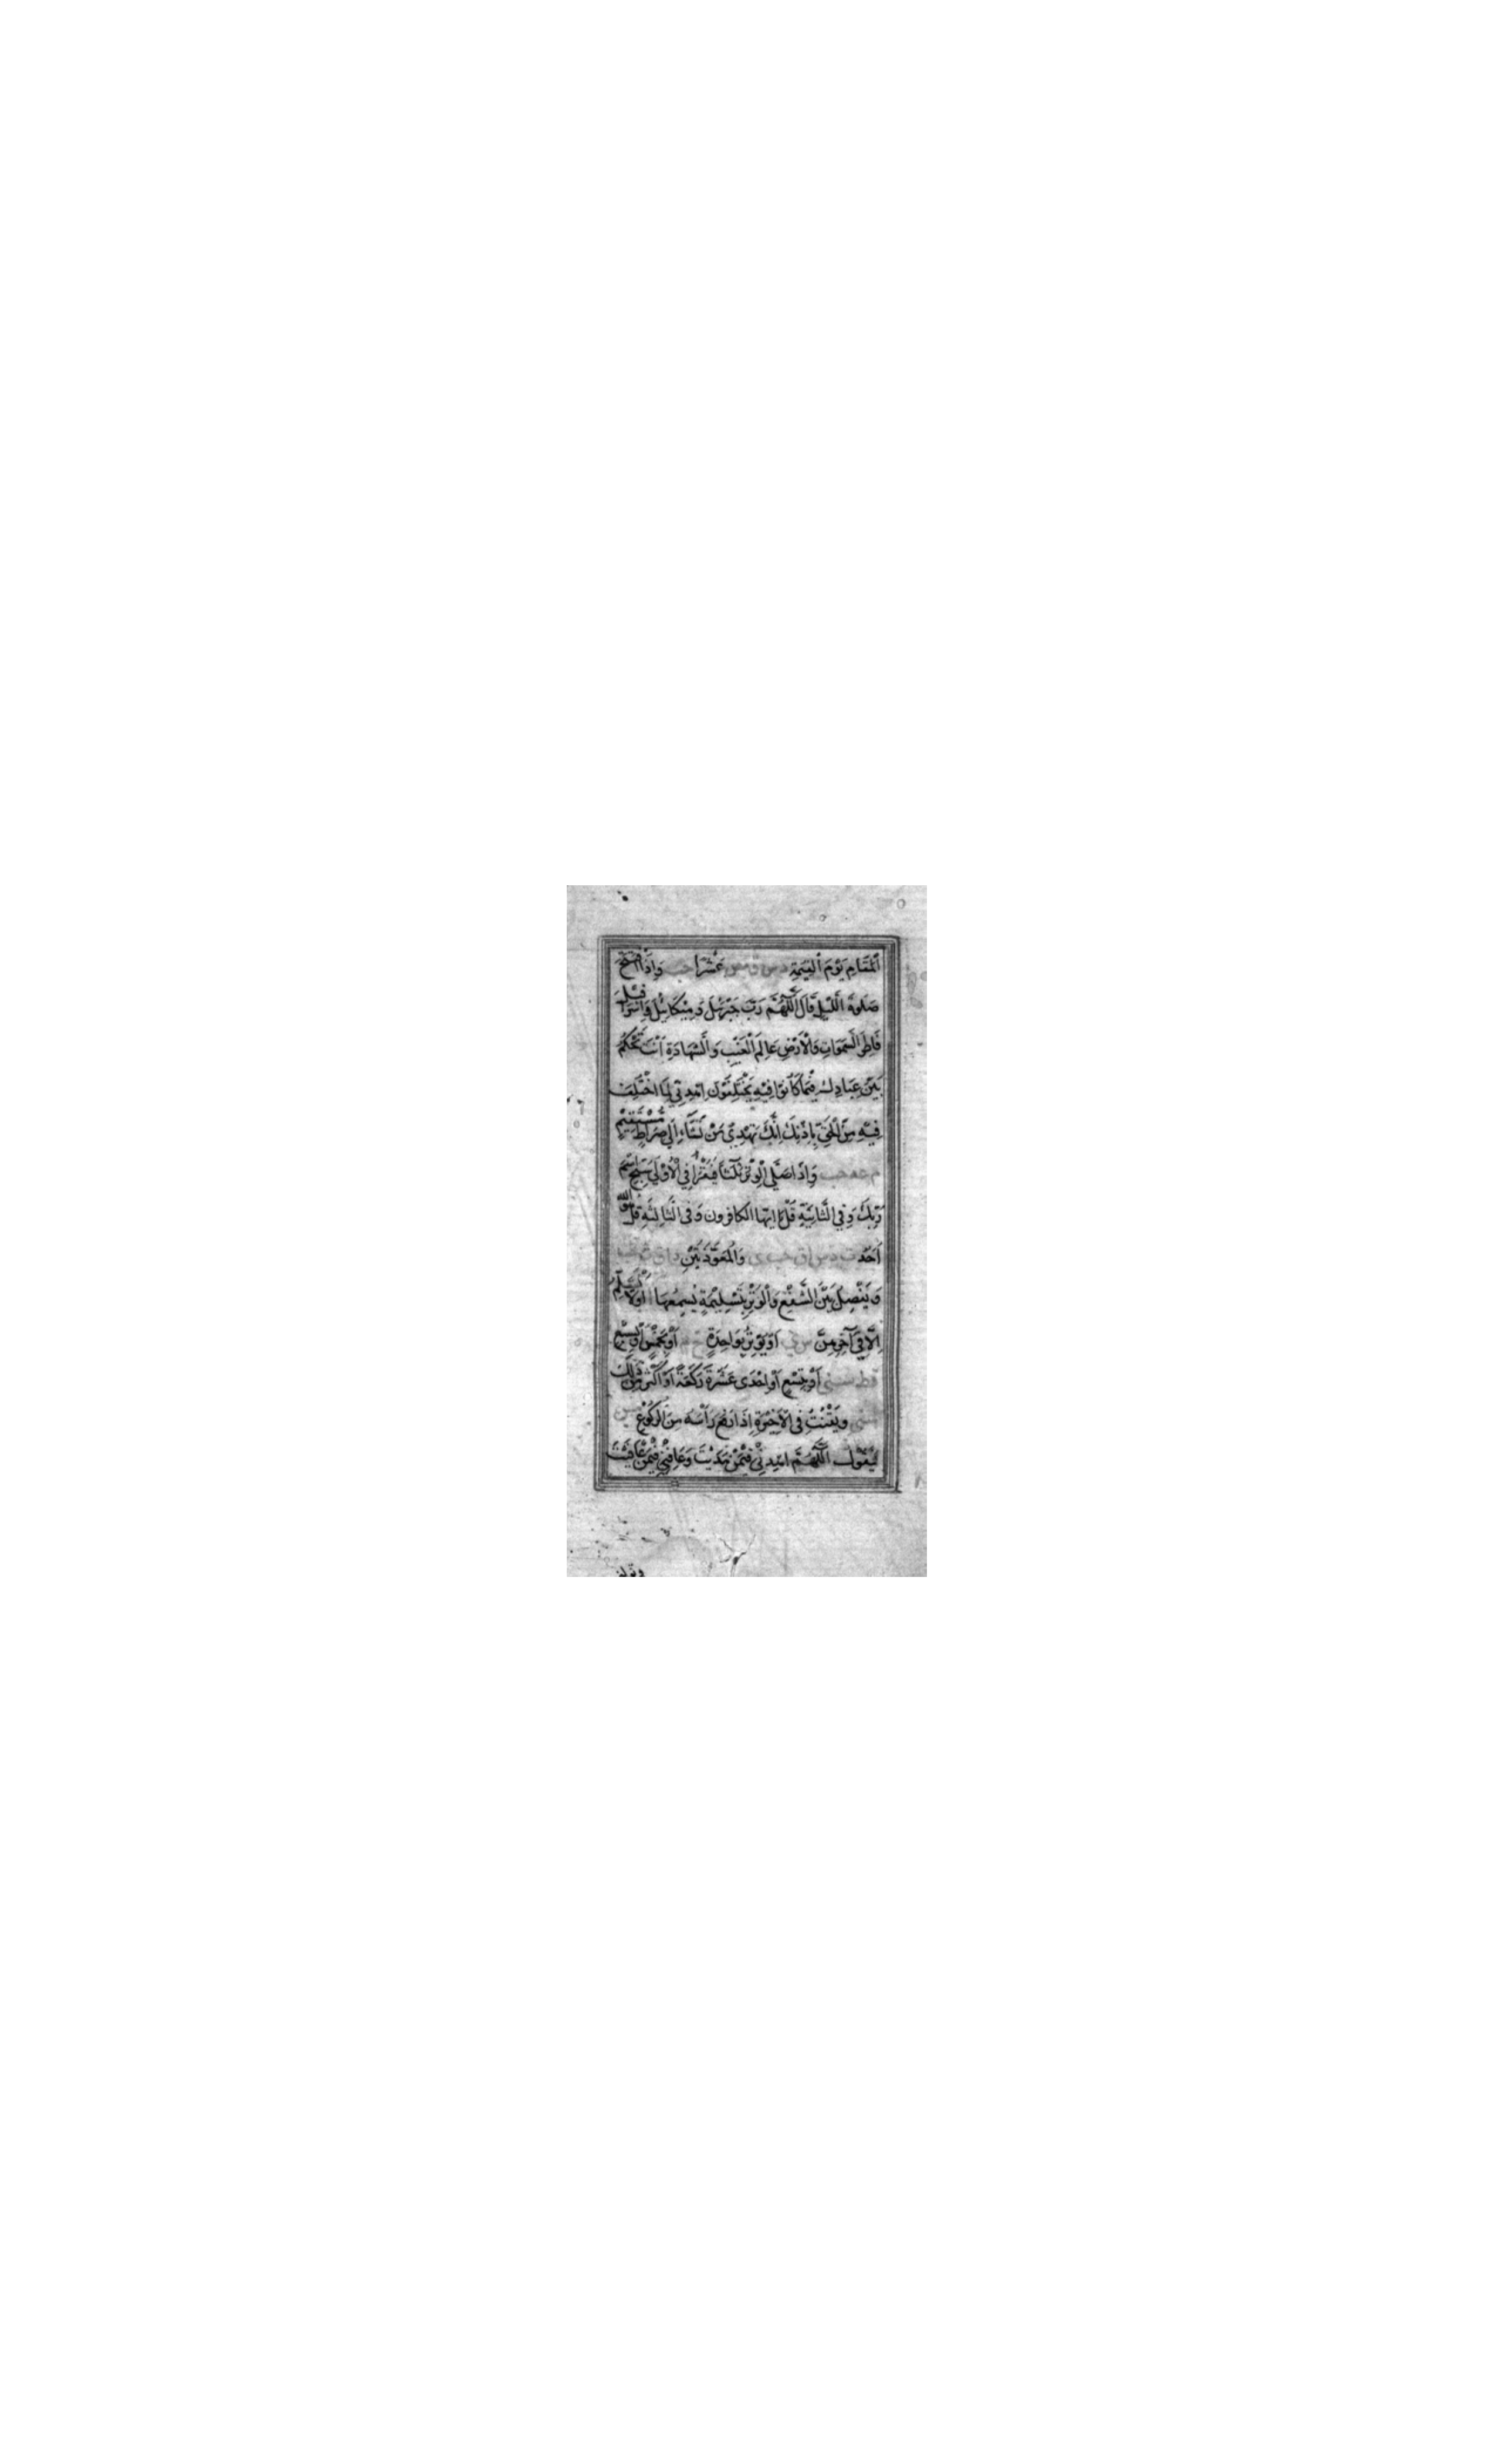 اَلْمَقَامِ يَوْمَ الْقِيٰمَةِ د س ق مص عَشْرًا حب وَاِذَا افْتَتَحَ
صَلٰوةَ اللَّيْلِ قَالَ اَللّٰهُمَّ رَبَّ جَبْرَئِلَ وَمِيْكَائِيْلَ وَاِسْرَافِيْلَ
فَاطِرَ السَّمٰوَاتِ وَالْاَرْضِ عَالِمَ الْغَيْبِ وَالشَّهَادَةِ اَنْتَ تَحْكُمُ
بَيْنَ عِبَادِكَ فِيْمَا كَانُوْا فِيْهِ يَخْتَلِفُوْنَ اِهْدِنِيْ لِمَا اخْتُلِفَ
فِيْهِ مِنَ الْحَقِّ بِاِذْنِكَ اِنَّكَ تَهْدِيْ مَنْ تَشَاءُ اِلٰى صِرَاطٍ مُسْتَقِيْمٍ
م عه حب وَاِذَا صَلَّى الْوِتْرَ ثَلٰثًا فَيَقْرَأُ فِي الْاُوْلٰى سَبِّحِ اسْمَ
رَبِّكَ وَفِي الثَّانِيَةِ قُلْ يَا اَيُّهَا الكافرون وَفِى الثَّالِثَةِ قُلْ هُوَ اللّٰهُ
اَحَدٌ ت د س ق حب ى وَالْمُعَوِّذَتَيْنِ د ا ق
وَيَفْصِلُ بَيْنَ الشَّفْعِ وَالْوِتْرِ بِتَسْلِيْمَةٍ يُسْمِعُهَا ا اَوْ لَا يُسَلِّمُ
اِلَّا فِيْ آخِرِهِنَّ س ى اَوْ يُوْتِرُ بِوَاحِدَةٍ خ م اَوْ بِخَمْسٍ اَوْ بِسَبْعٍ
قط سنى اَوْ بِتِسْعٍ اَوْ اِحْدٰى عَشْرَةَ رَكْعَةً اَوْ اَكْثَرَ مِنْ ذٰلِكَ
سنى وَيَقْنُتُ فِي الْاَخِيْرَةِ اِذَا رَفَعَ رَاْسَهُ مِنَ الرُّكُوْعِ مس
فَيَقُوْلُ اَللّٰهُمَّ اهْدِنِيْ فِيْمَنْ هَدَيْتَ وَعَافِنِيْ فِيْمَنْ عَافَيْتَ